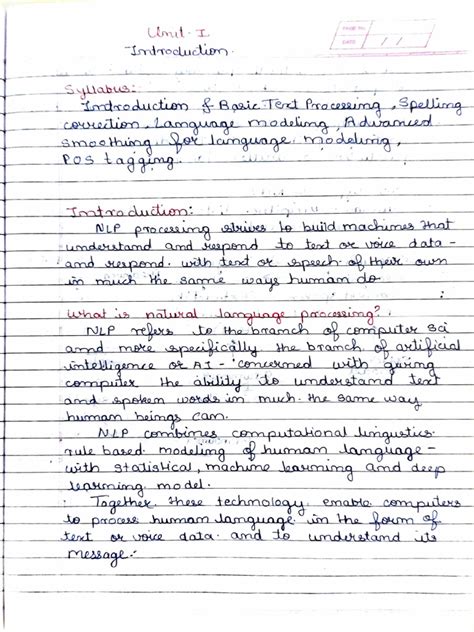 Unit - I
Introduction.
PAGE No.
DATE / /
Syllabus:
Introduction & Basic Text Processing, Spelling
correction, Language modeling, Advanced
smoothing for language modeling,
POS tagging.
Introduction:
NLP processing strives to build machines that
understand and respond to text or voice data -
and respond with text or speech of their own
in much the same ways human do.
What is natural language processing?
NLP refers to the branch of computer sci
and more specifically the branch of artificial
intelligence or AI - concerned with giving
computer the ability to understand text
and spoken words in much the same way
human beings can.
NLP combines computational linguistics-
rule based modeling of human language -
with statistical, machine learning and deep
learning model.
Together these technology enable computers
to process human language in the form of
text or voice data and to understand its
message.